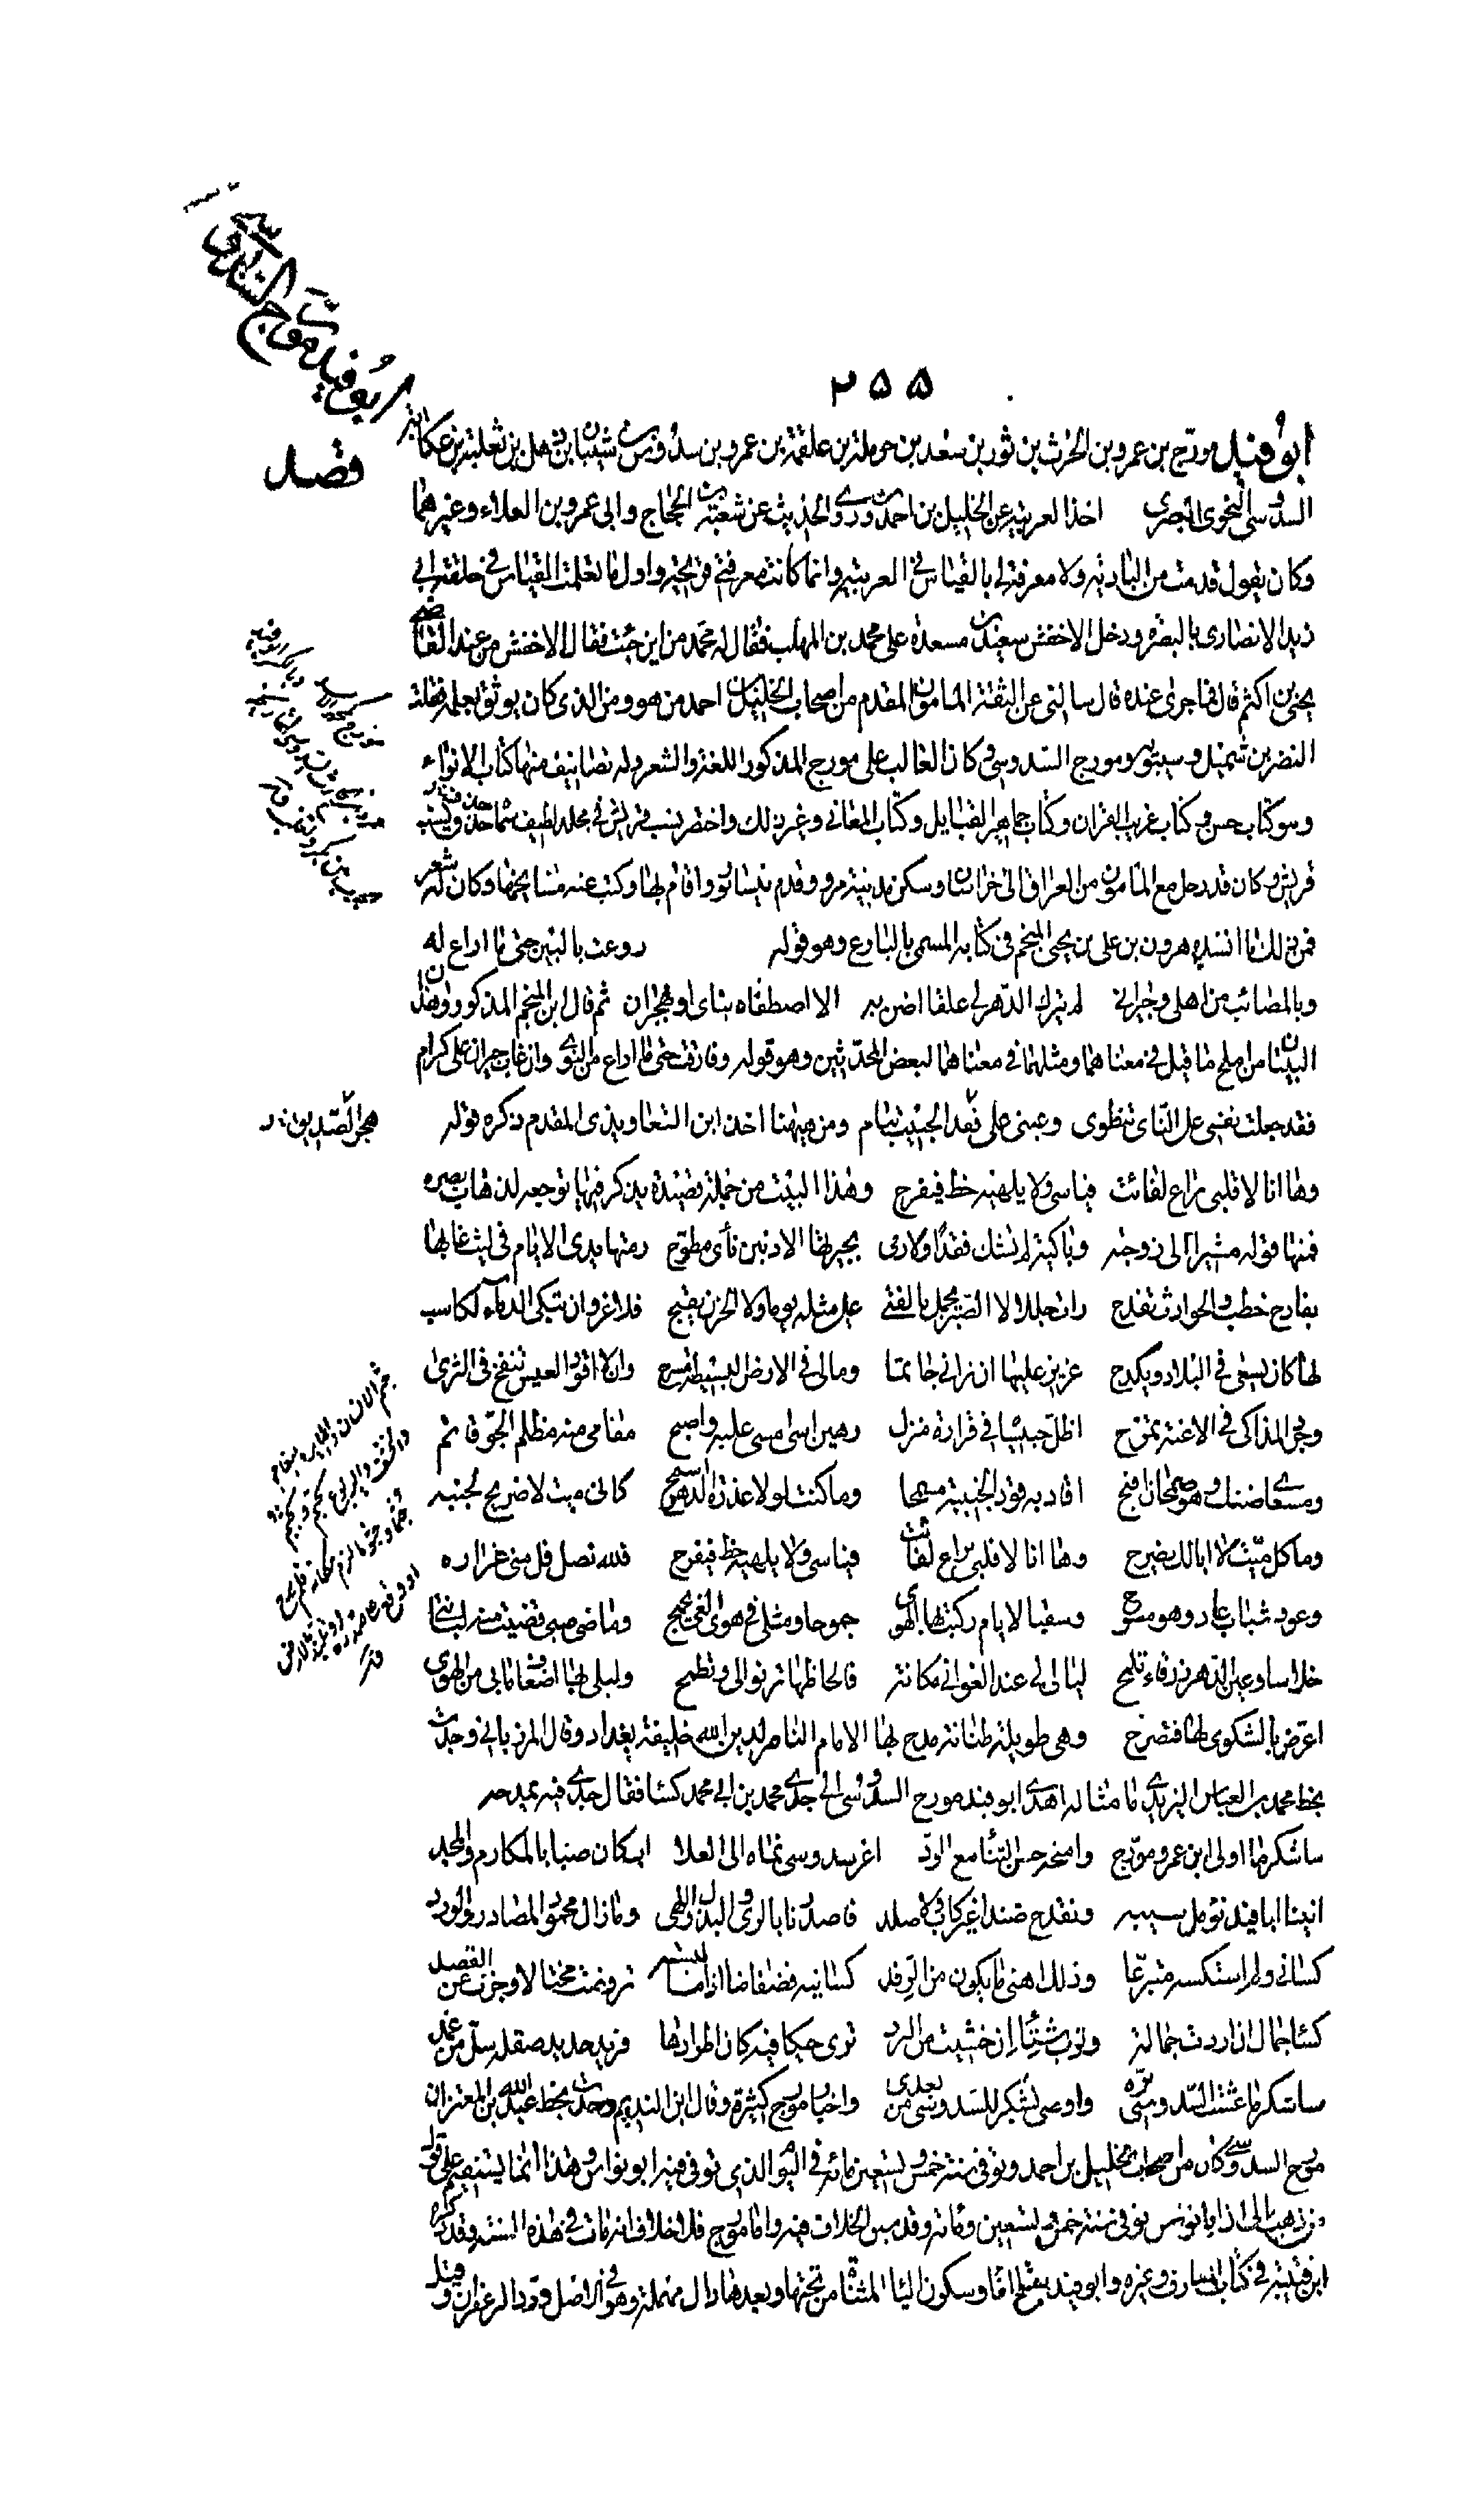 ابو فيد مورج السدوسي
٢٥٥
ابو فيد مورج بن عمرو بن الحرث بن ثور بن سعد بن حرملة بن علقمة بن عمرو بن سدوس بن شيبان بن ذهل بن ثعلبة بن عكابة
فصل
السدوسي النحوي البصري اخذ العربية عن الخليل بن احمد وروي الحديث عن شعبة بن الحجاج وابي عمرو بن العلاء وغيرهما
وكان يقول قدمت من البادية ولا معرفة لي بالقياس في العربية وانما كانت معرفتي قريحة واول ما تعلمت القياس في حلقة ابي
زيد الانصاري بالبصرة ودخل الاخفش سعيد بن مسعدة على محمد بن المهلب فقال له محمد من اين جئت فقال الاخفش من عند القاضي
يحيى بن اكثم قال فما جرى عنده قال سالني عن الثقة المامون المقدم من اصحاب الخليل بن احمد من هو ومن الذي كان يوثق بعلمه فقلت
النضر بن شميل وسيبويه ومورج السدوسي وكان الغالب على مورج المذكور اللغة والشعر وله تصانيف منها كتاب الانواء
وهو كتاب حسن وكتاب غريب القران وكتاب جماهير القبايل وكتاب المعاني وغير ذلك واختصر نسب قريش في مجلد لطيف سماه حذف نسب
قريش وكان قد رحل مع المامون من العراق الى خراسان وسكن مدينة مرو وقدم نيسابور واقام بها وكتب عنه مشايخها وكان له شعر
فمن ذلك ما انشده هرون بن علي بن يحيى المنجم في كتابه المسمى بالبارع وهو قوله روعت بالبين حتى ما اراع له
وبالمصائب من اهلي وجيراني لم يترك الدهر لي علقا اضن به الا اصطفاه بناي او بهجران ثم قال ابن المنجم المذكور وهذان
البيتان من املح ما قيل في معناهما ومثلهما في معناهما لبعض المحدثين وهو قوله وفارقت حتى ما اراع من النوى وان غاب جيران علي كرام
فقد جعلت نفسي على الناي تنطوي وعيني على فقد الحبيب تنام ومن ههنا اخذ ابن التعاويذي المقدم ذكره قوله
هجر الصديق
وها انا لا قلبي يراع لفائت فياسى ولا يلهيه حظ فيفرح وهذا البيت من جملة قصيدة يذكر فيها توجعه لذهاب بصره
فمنها قوله مشيرا الى زوجته وباكية لم تشك فقدا ولا رمى بجيرتها الادنين نأي مطوح رمتها يدي الايام في ليث غابها
بفادح خطب والحوادث تفدح رات جللا لا الصبر يجمل بالفتى على مثله يوما ولا الحزن يقبح فلا غرو ان تبكي الدماء لكاسب
لها كان يسعى في البلاد ويكدح عزيز عليها ان تراني جاثما ومالي في الارض البسيطة مسرح وان لا اقود العيس تنفخ في الثرى
وجرد المذاكي في الاعنة تمرح اظل حبيسا في قرارة منزل رهين اسى امسي عليه واصبح مقامي منه مظلم الجو قاتم
ومسعاي ضنك وهو ضحيان افيح اقاد به قود الجنيبة مسمحا وما كنت لولا غدرة الدهر اسمح كاني ميت لا ضريح لجنبه
وما كل ميت لا ابا لك يضرح وها انا لا قلبي يراع لفائت فياسى ولا يلهيه حظ فيفرح فلله نصل فل مني غراره
وعود شباب عاد وهو مصوح وسقيا لايام ركبت بها الهوى جموحا ومثلي في هوى الغيد يجمح وماضي صبى قضيت منه لبانتي
خلاسا وعين الدهر زرقاء تلمح ليالي لي عند الغواني مكانة فالحاظها ترنو الي وتطمح وليلي بها اضعاف ما بي من الهوى
اعرض بالشكوى لها فتصرح وهي طويلة طنانة مدح بها الامام الناصر لدين الله خليفة بغداد وقال المرزباني وجدت
بخط محمد بن العباس اليزيدي ما مثاله اهدى ابو فيد مورج السدوسي الى جدي محمد بن ابي محمد كسا فقال جدي فيه يمدحه
ساشكر ما اولى ابن عمرو مورج وامنحه حسن الثنا مع الود اغر سدوسي نماه الى العلا اب كان صبا بالمكارم والمجد
اتينا ابا فيد نومل سيبه ونقدح زندا غير كاب ولا صلد فاصدرنا بالري والبذل واللهى وما زال محمود المصادر والورد
كساني ولم استكسه متبرعا وذلك اهنى ما يكون من الرفد كسانيه فضفاضا اذا ما لبسته تروحت مختالا وجرت عن القصد
كسا جمال ان اردت جمالة وثوب شتاء ان خشيت من البرد ترى حبكا فيه كان اطرادها فرند حديد صقله سل من غمد
ساشكر ما عشت السدوسي بره واوصي بشكر للسدوسي من بعدي واخبار مورج كثيرة وقال ابن النديم وجدت بخط عبد الله بن المعتز ان
مورج السدوسي كان من اصحاب الخليل بن احمد وتوفي سنة خمس وتسعين ومائة في اليوم الذي توفي فيه ابو نواس وهذا انما يستقيم على قول
من ذهب الى ان ابا نواس توفي سنة خمس وتسعين ومائة وقد سبق الخلاف فيه واما مورج فلا خلاف انه مات في هذه السنة وقد ذكره
ابن قتيبة في كتاب المعارف وغيره وابو فيد بفتح الفا وسكون اليا المثناة من تحتها وبعدها دال مهملة وهو في الاصل ورد الزعفران وقيل